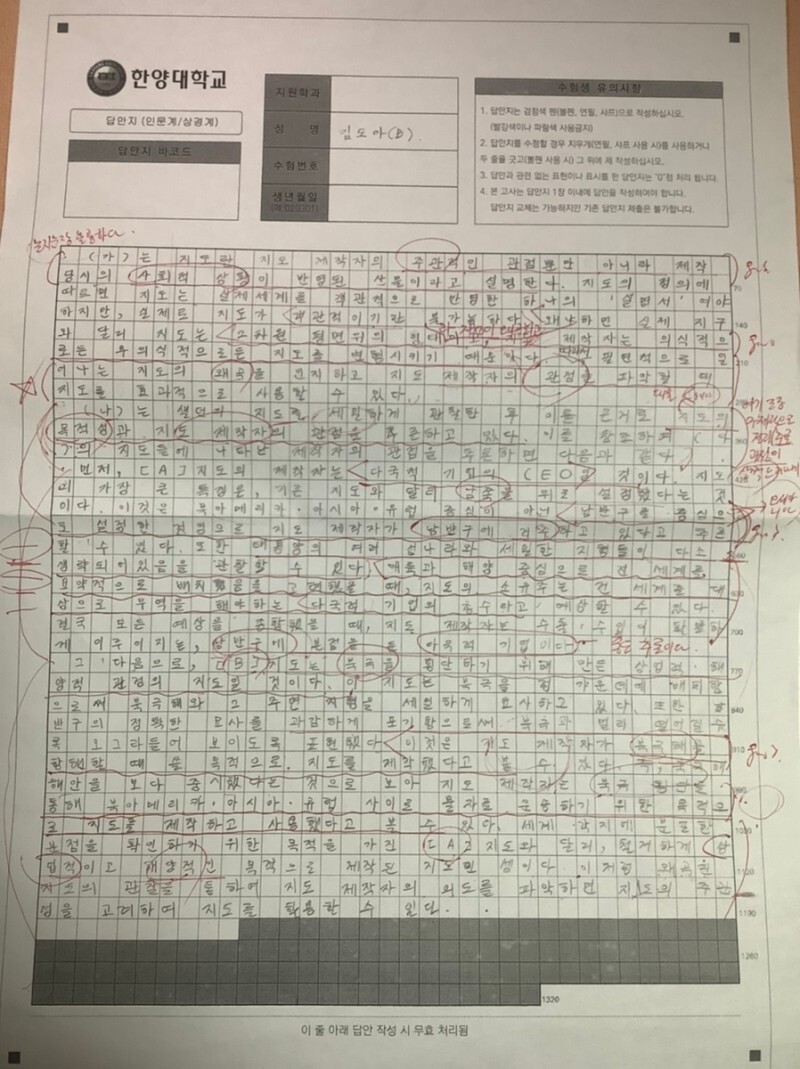 한양대학교
답안지 (인문계/상경계)
답안지 바코드
지원학과
성 명 김도아(B).
수험번호
생년월일
(예:020301)
수험생 유의사항
1. 답안지는 검정색 펜(볼펜, 연필, 샤프)으로 작성하십시오.
(빨강색이나 파랑색 사용금지)
2. 답안지를 수정할 경우 지우개(연필, 샤프 사용 시)를 사용하거나
두 줄을 긋고(볼펜 사용 시) 그 위에 재 작성하십시오.
3. 답안과 관련 없는 표현이나 표시를 한 답안지는 "0"점 처리 됩니다.
4. 본 고사는 답안지 1장 이내에 답안을 작성하여야 합니다.
답안지 교체는 가능하지만 기존 답안지 제출은 불가합니다.
(가)는 지도란 지도 제작자의 주관적인 관점뿐만 아니라 제작
당시의 사회적 상황이 반영된 산물이라고 설명한다. 지도의 정의에
70
따르면 지도는 실제세계를 객관적으로 반영한 하나의 '설명서'여야
하지만, 실제로 지도가 객관적이기란 불가능하다. 왜냐하면 실제 지구
140
와 달리 지도는 2차원 평면위의 제작자는 의식적으
로든 무의식적으로든 지도를 변형시키기 때문이다. 필연적으로 일
210
어나는 지도의 왜곡을 인지하고 지도 제작자의 관점을 파악할 때
지도를 효과적으로 사용할 수 있다.
(나)는 세밀하게 관찰한 후 이를 근거로 지도의
목적성과 지도 제작자의 관점을 추론하고 있다. 이를 참조하여 (다)
의 지도들에 나타난 제작자의 관점을 추론하면 다음과 같다.
먼저, [A]지도의 제작자는 다국적 기업의 CEO일 것이다. 지도
의 가장 큰 특징은, 기존 지도와 달리 남쪽을 위로 설정했다는 것
이다. 이것은 북아메리카·아시아·유럽 중심이 아닌 남반구를 중심으
로 설정한 것임으로 지도 제작자가 남반구에 거주하고 있다고 추론
할 수 있다. 또한 대륙의 여러 섬나라와 세밀한 지형들이 다소
560
생략되어있음을 관찰할 수 있다. 대륙과 해양 중심으로 전 세계를
요약적으로 배치했음을 고려했을 때, 지도의 소유주는 전 세계를 대
630
상으로 무역을 해야하는 다국적 기업의 총수라고 예상할 수 있다.
결국 모든 예상을 조합했을 때, 지도 제작자는 수출·수입이 활발하
700
게 이루어지는, 남반구에 본점을 둔 다국적 기업이다.
좋은 추론이다.
그 다음으로, [B]지도는 북극을 횡단하기 위해 만든 상업적·해
770
양적 관점의 지도일 것이다. 이 지도는 북극을 정 가운데에 배치함
으로써 북극해와 그 주변 지형을 세밀하게 묘사하고 있다. 또한 남
840
반구의 정확한 묘사를 과감하게 포기함으로써 북극과 멀리 떨어질수
록 오그라들어 보이도록 표현했다. 이것은 지도 제작자가 북극해를
910
항해할 때 쓸 목적으로 지도를 제작했다고 볼 수 있다. 즉, 북극해
해안을 보다 중시했다는 것으로 보아 지도 제작자는 북극 횡단을
통해 북아메리카·아시아·유럽 사이로 물자를 운송하기 위한 목적으
로 지도를 제작하고 사용했다고 볼 수 있다. 세계 각지에 분포한
본점을 확인하기 위한 목적을 가진 [A]지도와 달리, 철저하게 상
업적이고 해양적인 목적으로 제작된 지도인 셈이다. 이처럼 왜곡된
1120
지도의 관찰을 통하여 지도 제작자의 의도를 파악하면 지도의 주관
성을 고려하여 지도를 활용할 수 있다.
1190
1260
1320
이 줄 아래 답안 작성 시 무효 처리됨